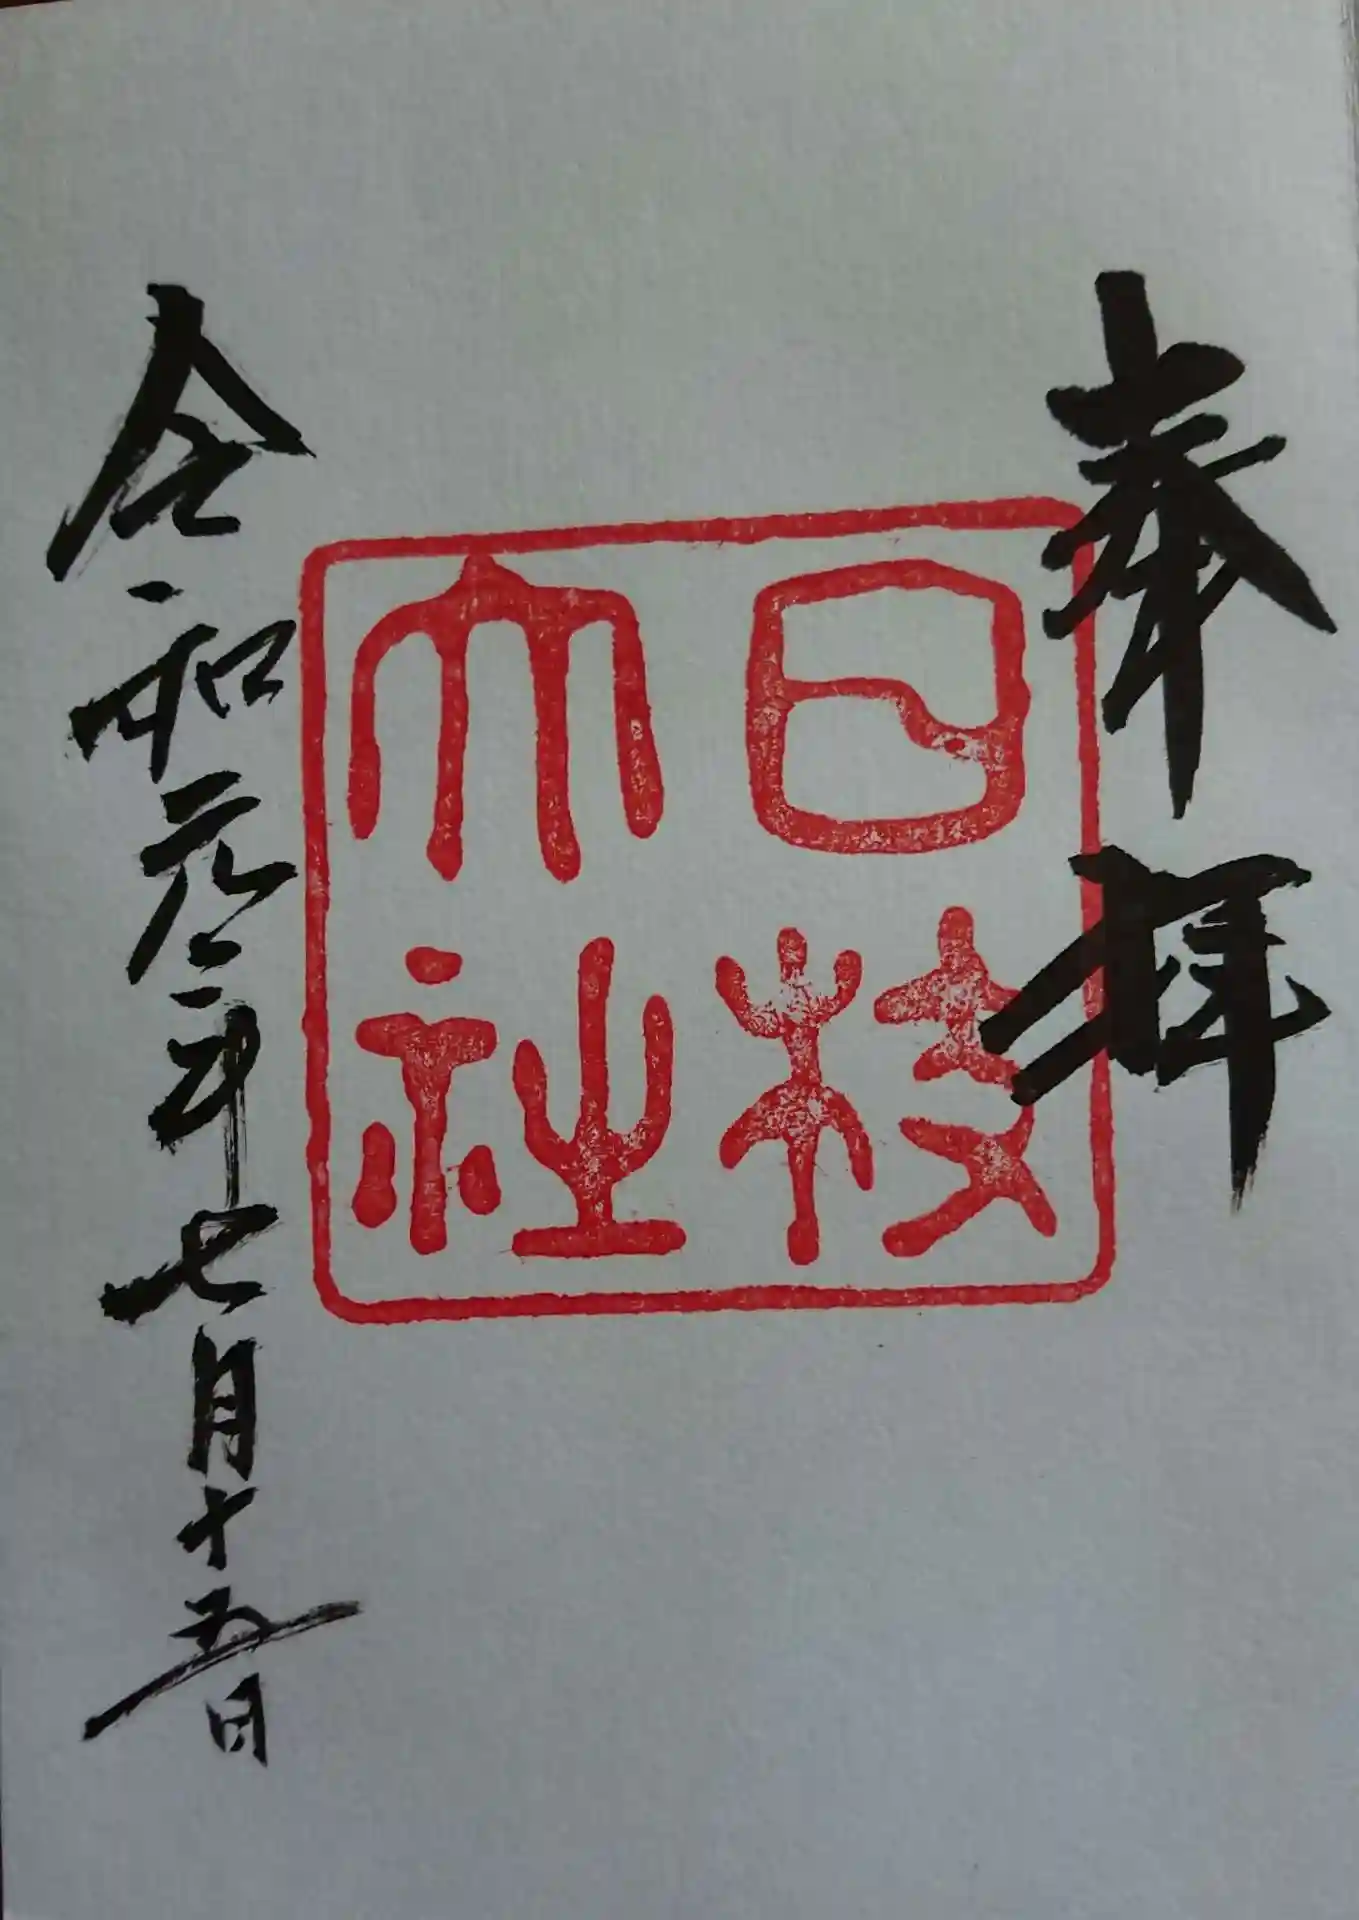 奉拝
日枝
大社
令和元年七月十五日